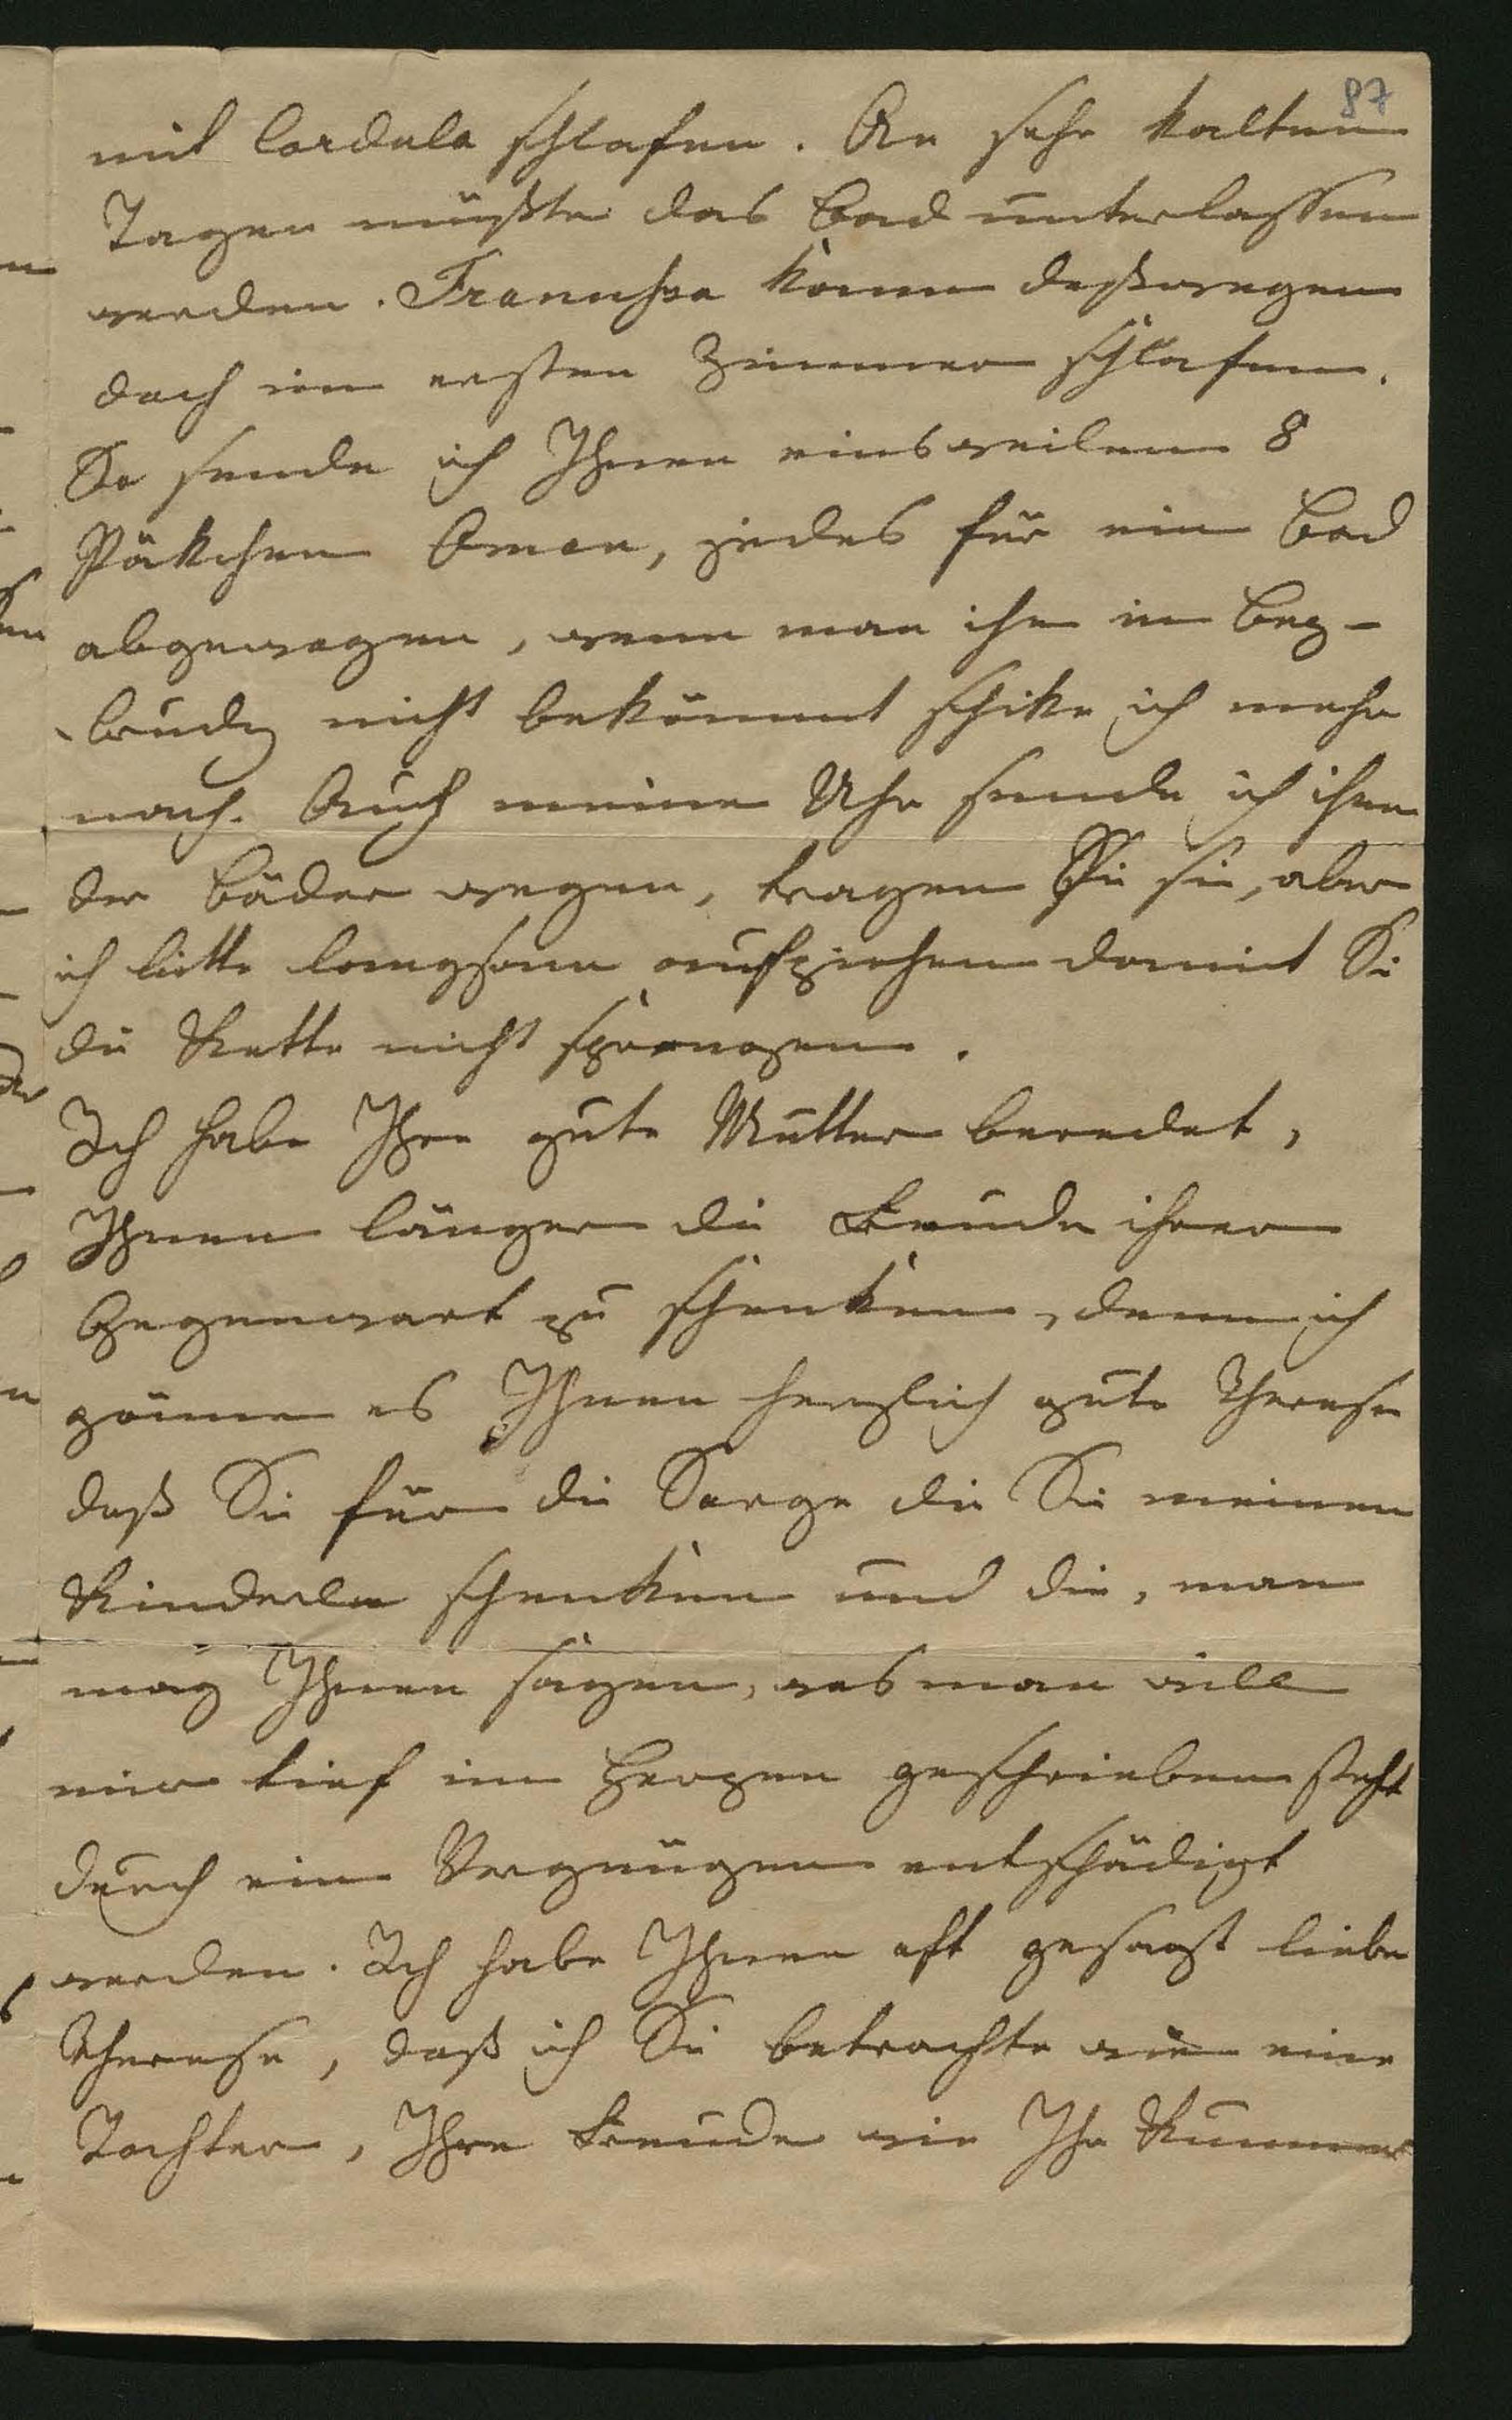 87
mit Cordula schlafen. An sehr kalten
Tagen müßte das Bad unterlassen
werden. Franussa könne deßwegen
doch im ersten Zimmer schlafen.
So sende ich Ihnen einsweilen 8
Päkchen jedes für ein Bad
abgewogen, wenn man ihn in
nicht bekömmt schike ich mehr
nach. Auch meine Uhr sende ich ihnen
der Bäder wegen, tragen Sie sie, aber
ich bitte langsam aufziehen damit Si
die Kette nicht sprengen.
Ich habe Ihre gute Mutter beredet,
Ihnen länger die Freude ihrer
Gegenwart zu schenken, denn ich
gönne es Ihnen herzlich gute Therese
daß Sie für die Sorge die Sie meinen
Kinderln schenken und die, man
mag Ihnen sagen, was man will
mir tief im Herzen geschrieben steht
durch ein Vergnügen entschädigt
werden. Ich habe Ihnen oft gesagt liebe
Therese, daß ich Sie betrachte wie eine
Tochter, Ihre Freude wie Ihr Kummer